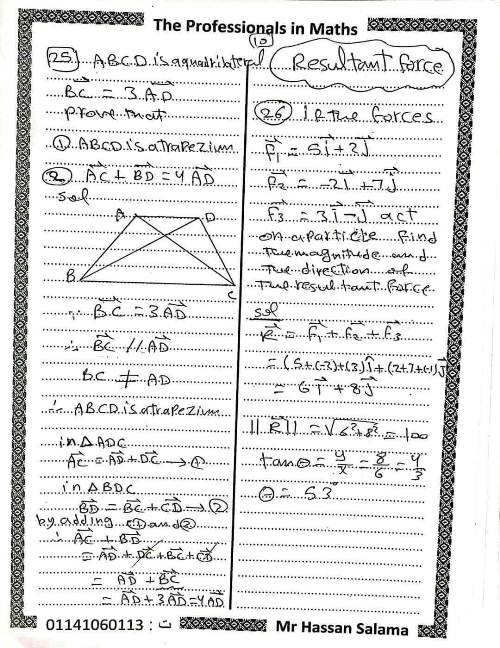 The Professionals in Maths
10
25 ABCD is a quadrilateral
BC = 3 AD
prove that
① ABCD is a trapezium
② AC + BD = 4 AD
sol
A D
B C
∵ BC = 3 AD
∴ BC // AD
BC ≠ AD
∴ ABCD is a trapezium
in Δ ADC
AC = AD + DC → ①
in Δ BDC
BD = BC + CD → ②
by adding ① and ②
∴ AC + BD
= AD + DC + BC + CD
= AD + BC
= AD + 3AD = 4AD
Resultant force
26 If the forces
F₁ = 5i + 2j
F₂ = -2i + 7j
F₃ = 3i - j act
on a particle find
the magnitude and
the direction of
the resultant force
sol
R = F₁ + F₂ + F₃
= (5 + (-2) + (3)) i + (2 + 7 + (-1)) j
= 6i + 8j
||R|| = √6² + 8² = 100
tan θ = y/x = 8/6 = 4/3
θ = 53
01141060113 : ت
Mr Hassan Salama